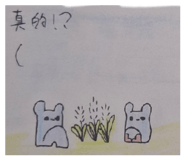 真的!?